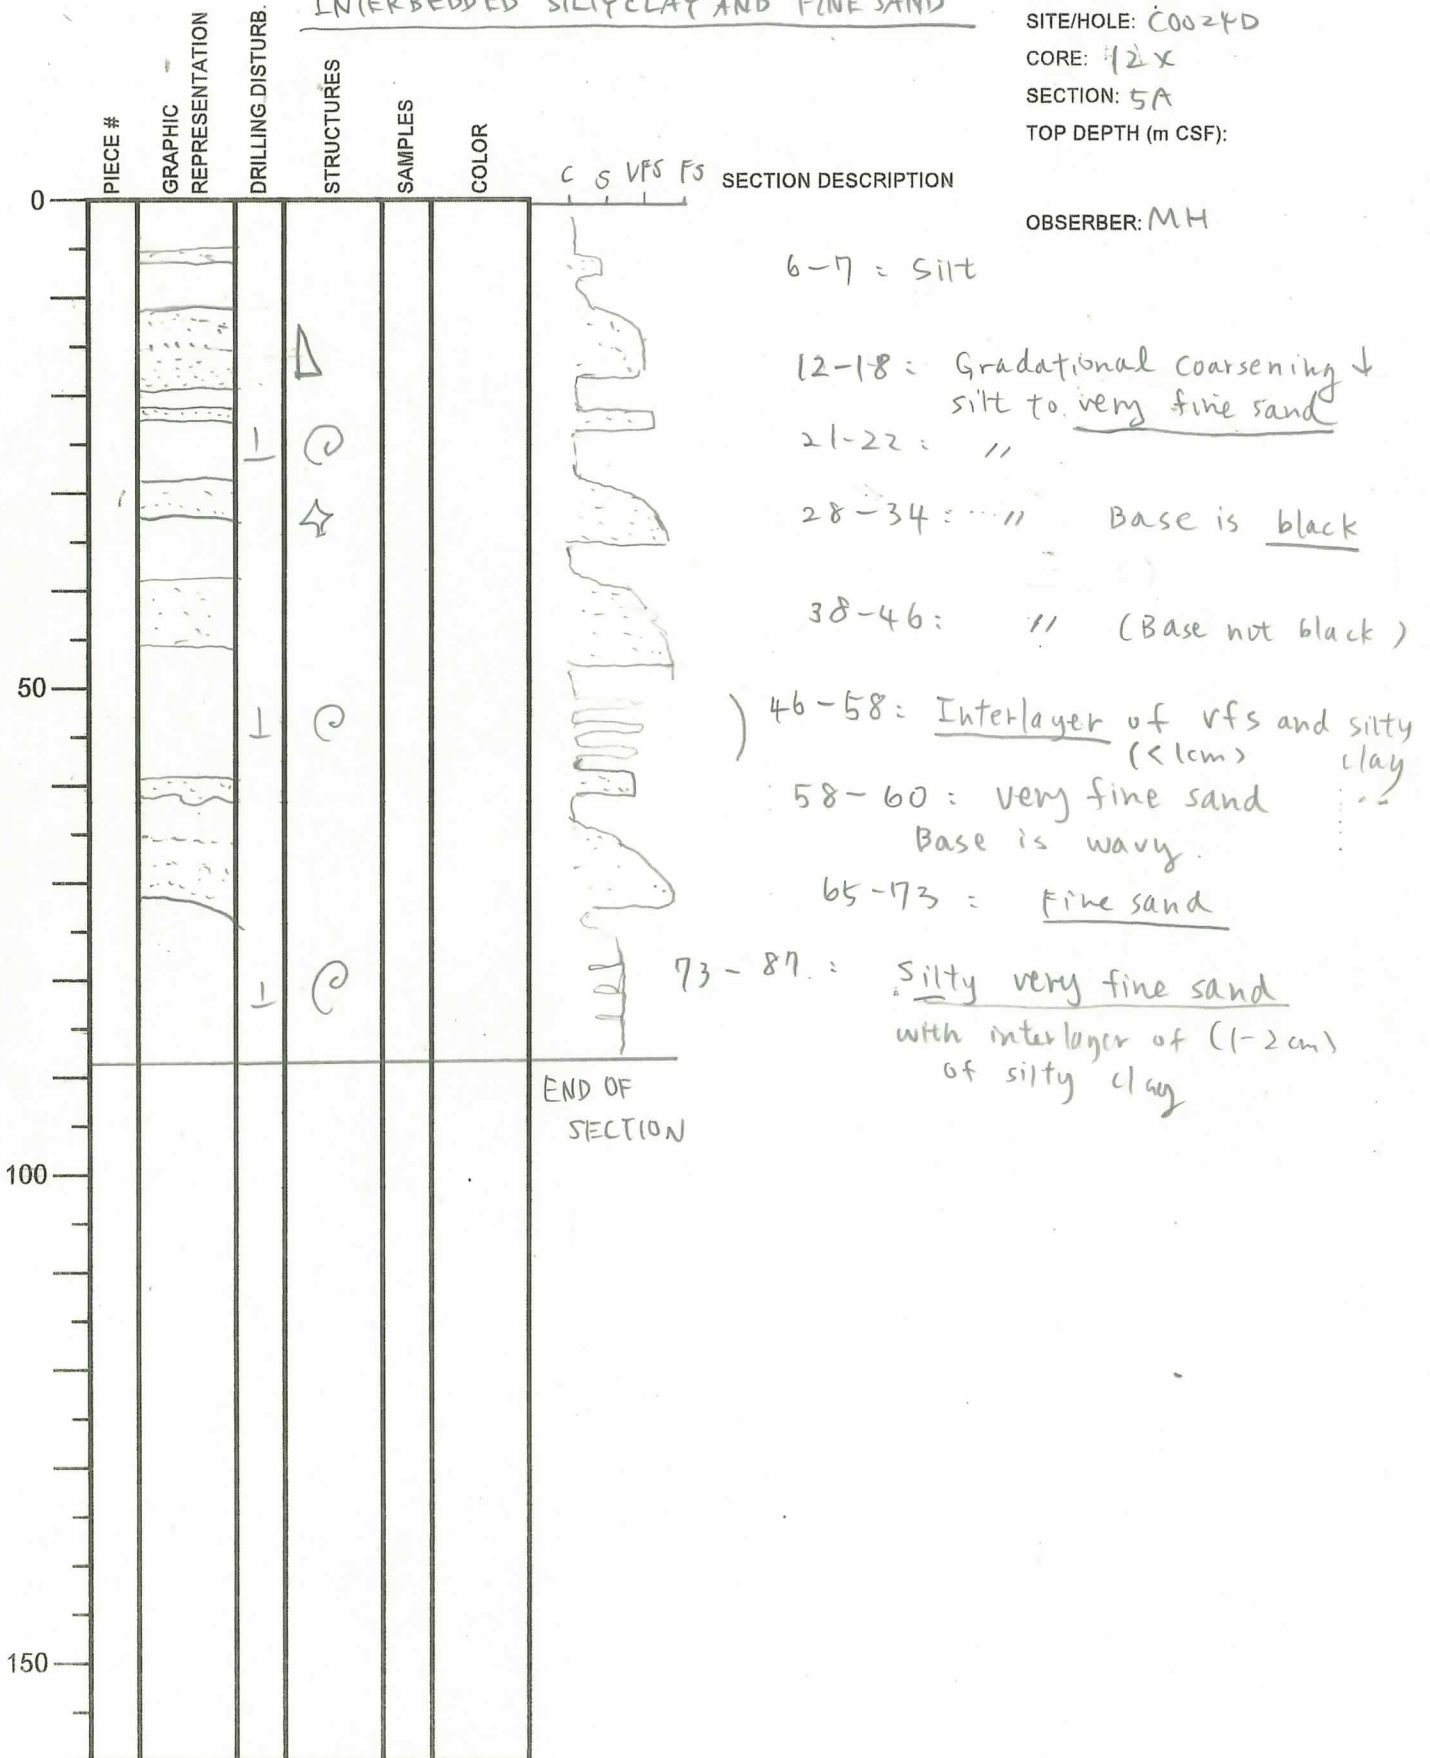 INTERBEDDED SILTYCLAY AND FINE SAND
SITE/HOLE: C0024D
CORE: 12X
SECTION: 5A
TOP DEPTH (m CSF):
OBSERBER: MH
PIECE #
GRAPHIC
REPRESENTATION
DRILLING DISTURB.
STRUCTURES
SAMPLES
COLOR
C S VFS FS
SECTION DESCRIPTION
0
6-7 : Silt
12-18 : Gradational coarsening ↓
silt to very fine sand
21-22 : 〃
28-34 : 〃 Base is black
38-46 : 〃 (Base not black)
50
46-58 : Interlayer of vfs and silty
(<1cm) clay
58-60 : very fine sand
Base is wavy.
65-73 : Fine sand
73-87 : Silty very fine sand
with interlayer of (1-2cm)
of silty clay
END OF
SECTION
100
150